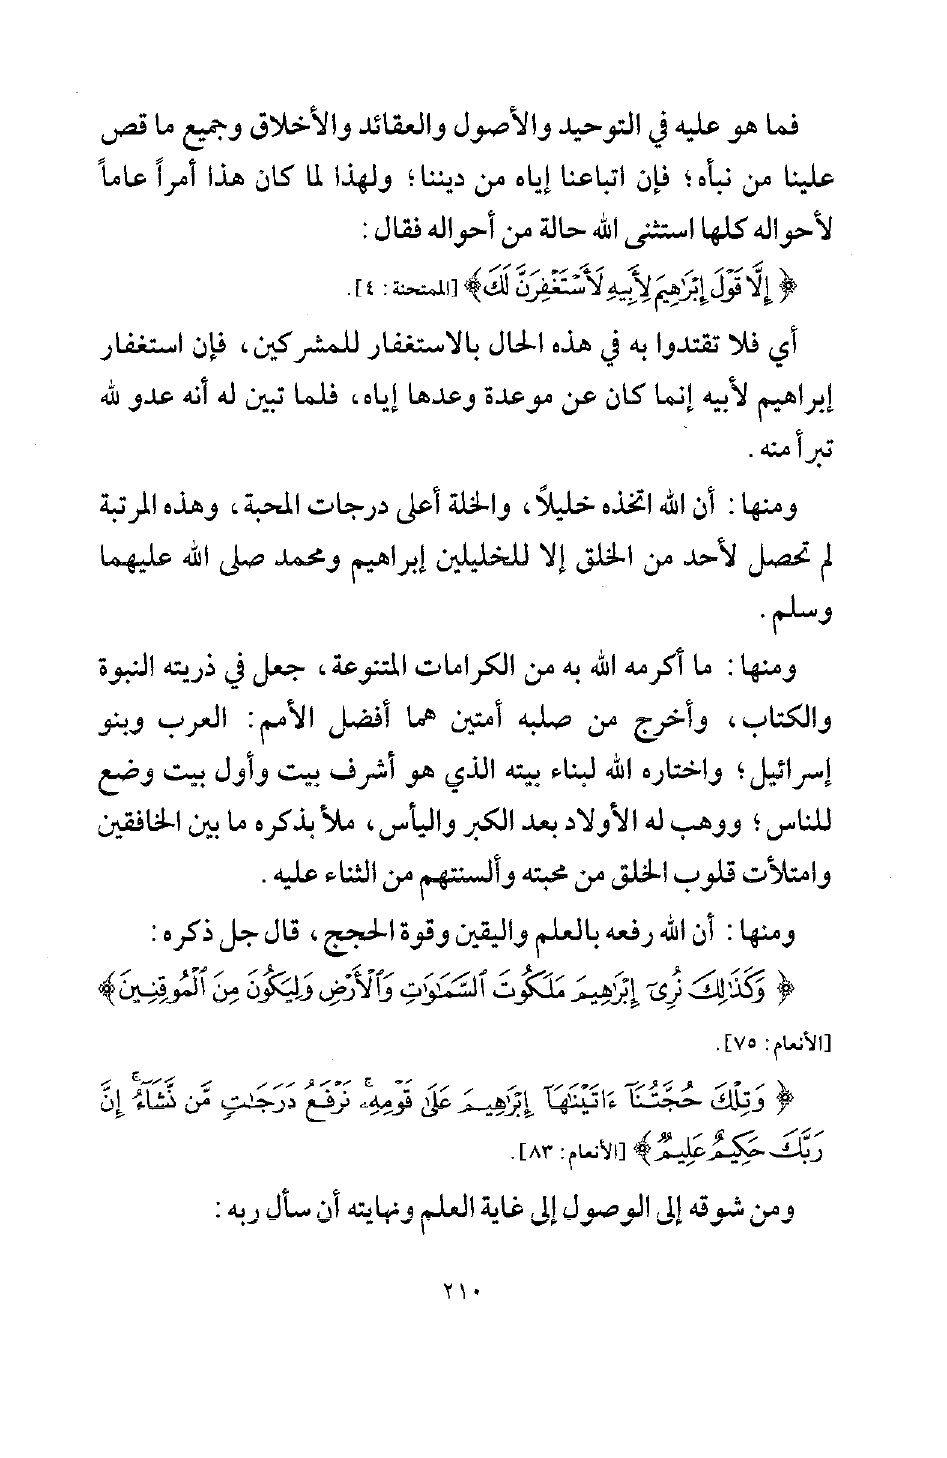 فما هو عليه في التوحيد والأصول والعقائد والأخلاق وجميع ما قص
علينا من نبأه؛ فإن اتباعنا إياه من ديننا؛ ولهذا لما كان هذا أمراً عاماً
لأحواله كلها استثنى الله حالة من أحواله فقال:
﴿إِلَّا قَوْلَ إِبْرَٰهِيمَ لِأَبِيهِ لَأَسْتَغْفِرَنَّ لَكَ﴾ [الممتحنة: ٤].
أي فلا تقتدوا به في هذه الحال بالاستغفار للمشركين، فإن استغفار
إبراهيم لأبيه إنما كان عن موعدة وعدها إياه، فلما تبين له أنه عدو لله
تبرأ منه.
ومنها: أن الله اتخذه خليلاً، والخلة أعلى درجات المحبة، وهذه المرتبة
لم تحصل لأحد من الخلق إلا للخليلين إبراهيم ومحمد صلى الله عليهما
وسلم.
ومنها: ما أكرمه الله به من الكرامات المتنوعة، جعل في ذريته النبوة
والكتاب، وأخرج من صلبه أمتين هما أفضل الأمم: العرب وبنو
إسرائيل؛ واختاره الله لبناء بيته الذي هو أشرف بيت وأول بيت وضع
للناس؛ ووهب له الأولاد بعد الكبر واليأس، ملأ بذكره ما بين الخافقين
وامتلأت قلوب الخلق من محبته وألسنتهم من الثناء عليه.
ومنها: أن الله رفعه بالعلم واليقين وقوة الحجج، قال جل ذكره:
﴿وَكَذَٰلِكَ نُرِىٓ إِبْرَٰهِيمَ مَلَكُوتَ ٱلسَّمَٰوَٰتِ وَٱلْأَرْضِ وَلِيَكُونَ مِنَ ٱلْمُوقِنِينَ﴾
[الأنعام: ٧٥].
﴿وَتِلْكَ حُجَّتُنَآ ءَاتَيْنَٰهَآ إِبْرَٰهِيمَ عَلَىٰ قَوْمِهِۦ ۚ نَرْفَعُ دَرَجَٰتٍ مَّن نَّشَآءُ ۗ إِنَّ
رَبَّكَ حَكِيمٌ عَلِيمٌ﴾ [الأنعام: ٨٣].
ومن شوقه إلى الوصول إلى غاية العلم ونهايته أن سأل ربه:
٢١٠